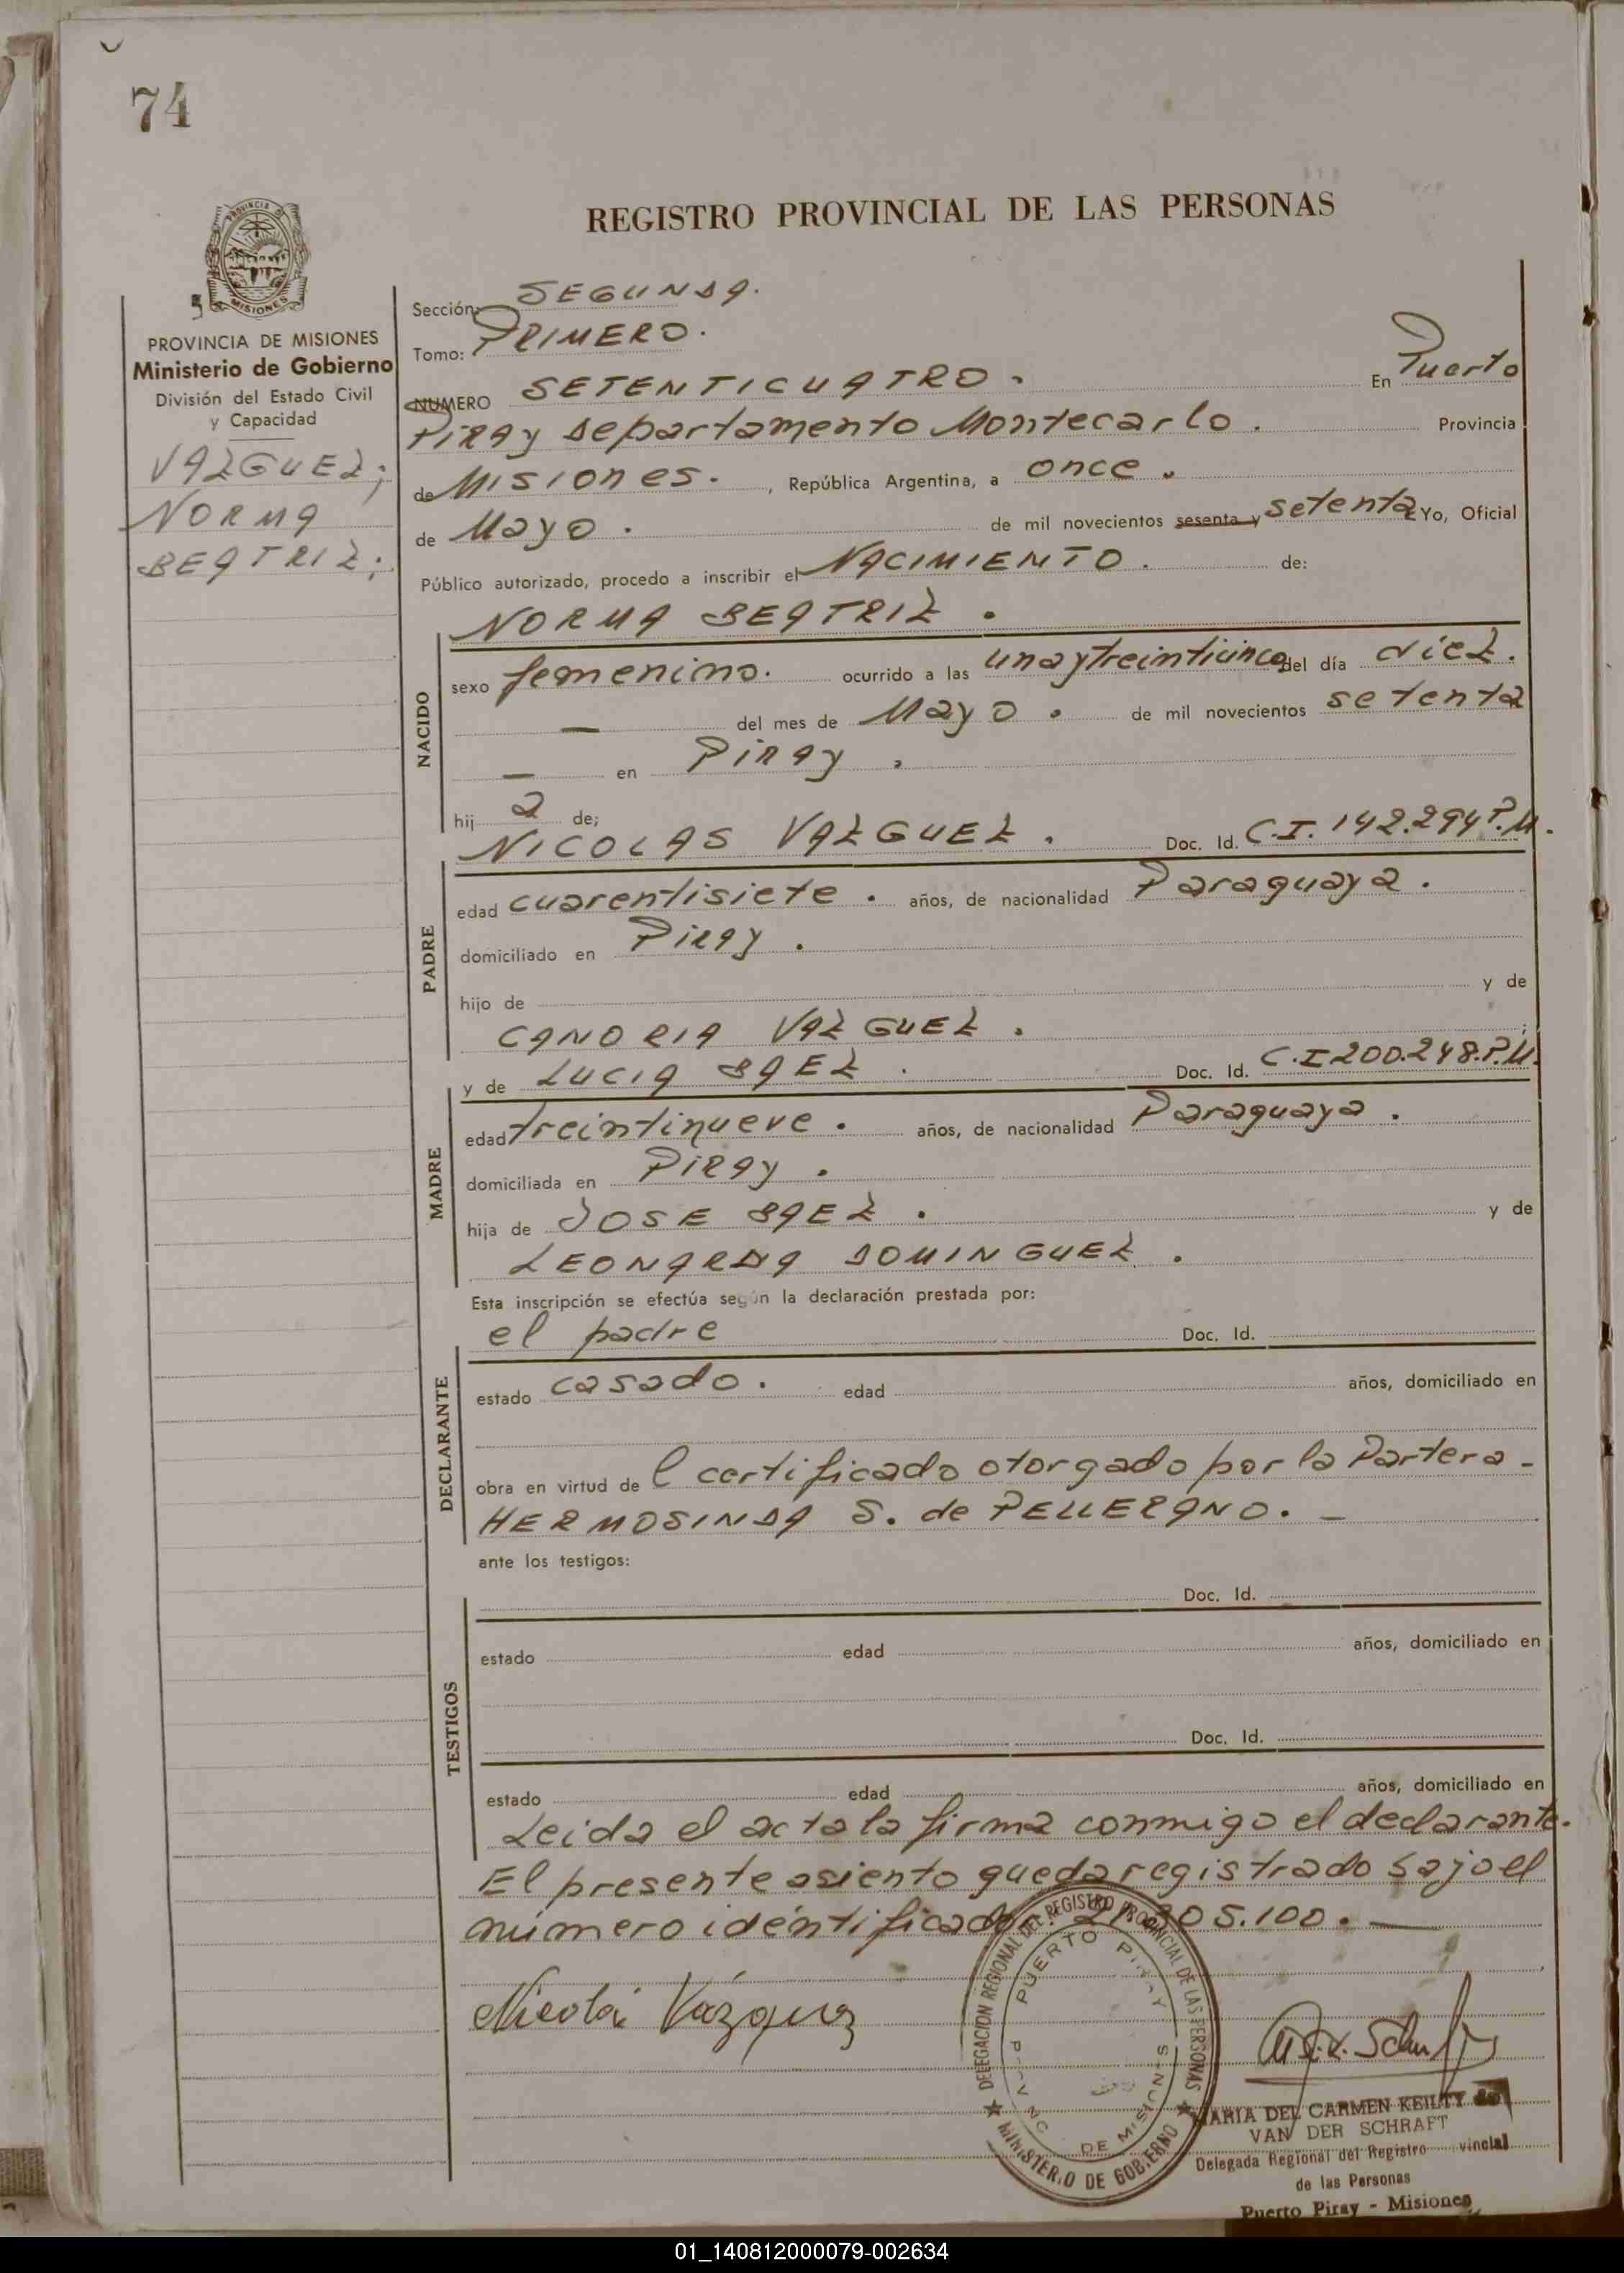 74
REGISTRO PROVINCIAL DE LAS PERSONAS
PROVINCIA DE
MISIONES
PROVINCIA DE MISIONES
Ministerio de Gobierno
División del Estado Civil
y Capacidad
VAZGUEZ;
NORMA
BEATRIZ;
Sección: SEGUNDA.
Tomo: PRIMERO.
NUMERO SETENTICUATRO. En Puerto
PIRAY Departamento Montecarlo. Provincia
de MISIONES. , República Argentina, a once.
de Mayo. de mil novecientos sesenta y setenta Yo, Oficial
Público autorizado, procedo a inscribir el NACIMIENTO. de:
NORMA BEATRIZ.
NACIDO
sexo femenino. ocurrido a las unaytreinticinco del día diez.
— del mes de Mayo. de mil novecientos setenta
— en Piray.
hij a de;
NICOLAS VAZGUEZ. Doc. Id. C.I. 142.294 P.M.
PADRE
edad cuarentisiete. años, de nacionalidad Paraguaya.
domiciliado en Piray.
hijo de y de
CANORIA VAZGUEZ. ;
y de LUCIA BAEZ. Doc. Id. C.I 200.248.P.M.
MADRE
edad treintinueve. años, de nacionalidad Paraguaya.
domiciliada en Piray.
hija de JOSE BAEZ. y de
LEONARDA DOMINGUEZ.
Esta inscripción se efectúa según la declaración prestada por:
el padre Doc. Id.
DECLARANTE
estado casado. edad años, domiciliado en
obra en virtud de l certificado otorgado por la Partera -
HERMOSINDA S. de PELLERANO. —
ante los testigos:
Doc. Id.
TESTIGOS
estado edad años, domiciliado en
Doc. Id.
estado edad años, domiciliado en
Leida el acta la firma conmigo el declarante.
El presente asiento queda registrado bajo el
número identificado: 05.100. —
Nicolá Vázquez
DELEGACION REGIONAL DEL REGISTRO PROVINCIAL DE LAS PERSONAS
MINISTERIO DE GOBIERNO
PUERTO PIRAY
DE MISIONES
MARIA DEL CARMEN KEILTY de
VAN DER SCHRAFT
Delegada Regional del Registro vincial
de las Personas
Puerto Piray - Misiones
01_140812000079-002634